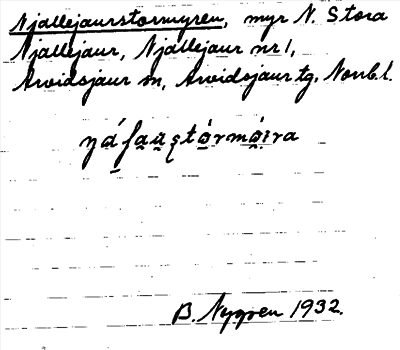 Njallejaurstormyren, myr N. Stora
Njallejaur, Njallejaur nr 1,
Arvidsjaur sn, Arvidsjaur tg. Norrb. l.
B. Nygren 1932.